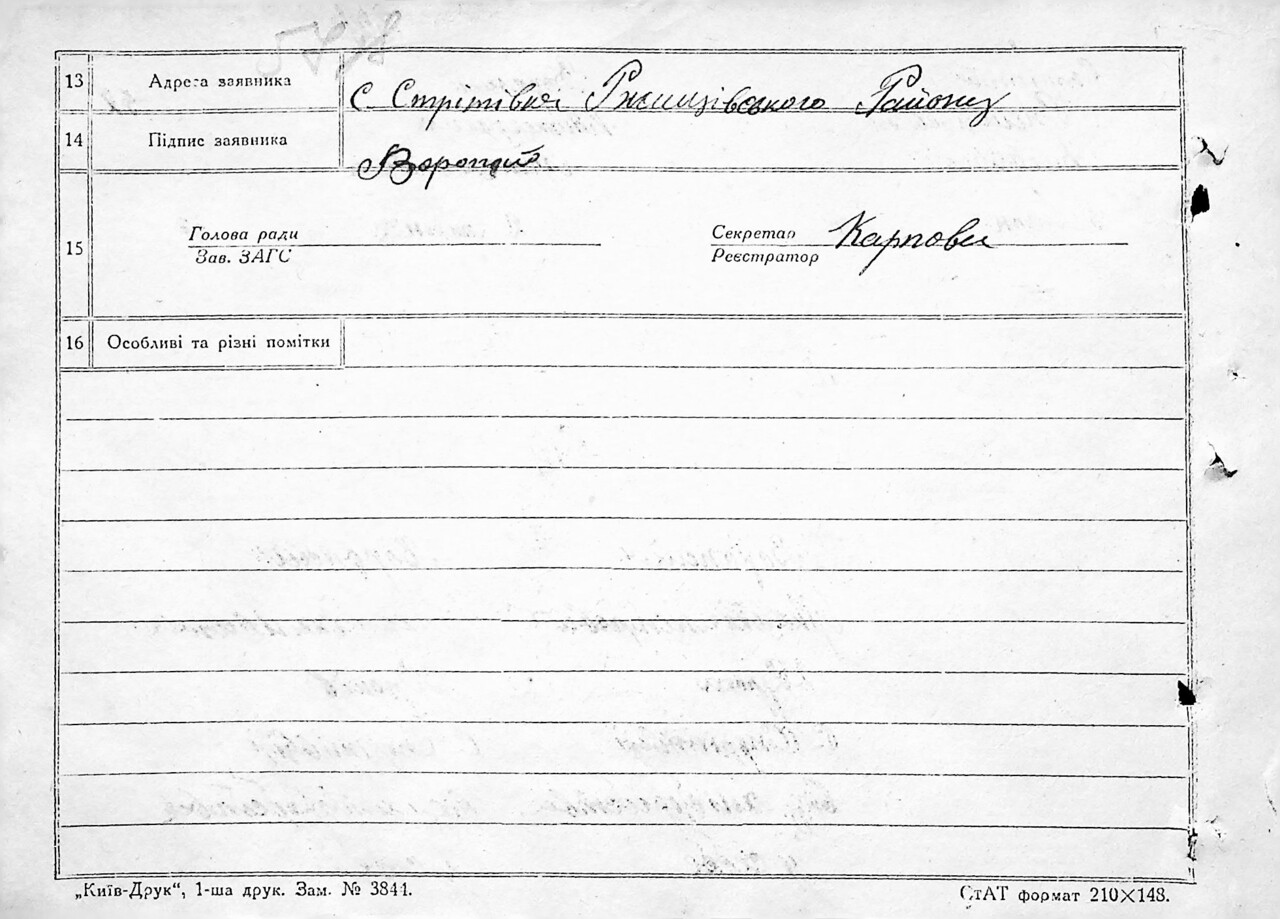 13 Адреса заявника с. Стрітівка Ржищівського Району
14 Підпис заявника Воропай
Голова ради Секретар Карпова
15
Зав. ЗАГС Реєстратор
16 Особливі та різні помітки
„Київ-Друк“, 1-ша друк. Зам. № 3844. СтАТ формат 210×148.